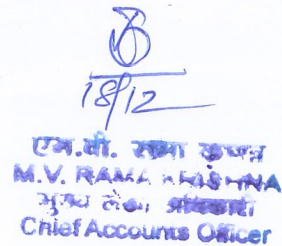 18/12
एम.वी. रामा कृष्णा
M.V. RAMA KRISHNA
मुख्य लेखा अधिकारी
Chief Accounts Officer